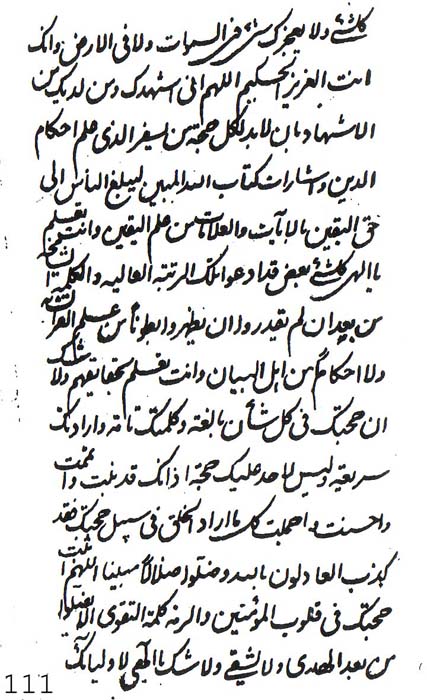 كلشئ ولا يعجزك من شئ فى السموات ولا فى الارض وانك
انت العزيز الحكيم اللهم انى اشهدك ومن لديك من
الاشهاد بان لا بد لكل حجة من السفر الذى علم احكام
الدين واشارات كتاب الله المبين ليبلغ الناس الى
حق اليقين بالايات والعلامات من علم اليقين وانت تعلم
يا الهى كلشئ بعض قد ادعوا تلك المرتبة العالية والكلمة الشامخة
من بعد ان لم يقدروا ان يظهروا بطونا من علم القران
ولا احكام من اهل البيان وانت تعلم بحقايقهم ولا شك
ان حجتك فى كل شأن بالغة وكلمتك تامة وارادتك
سريعة وليس لاحد عليك حجة اذ انك قد تمت واتممت
واحسنت واجملت كل ما اراد الخلق فى سبيل حجتك فقد
كذب العادلون بالله وضلوا ضلالا مبينا اللهم اثبت
حجتك فى قلوب المؤمنين والزمه كلمة التقوى الا يضلوا
من بعد الهدى ولا يشقى ولا شك يا الهى لاوليائك
111